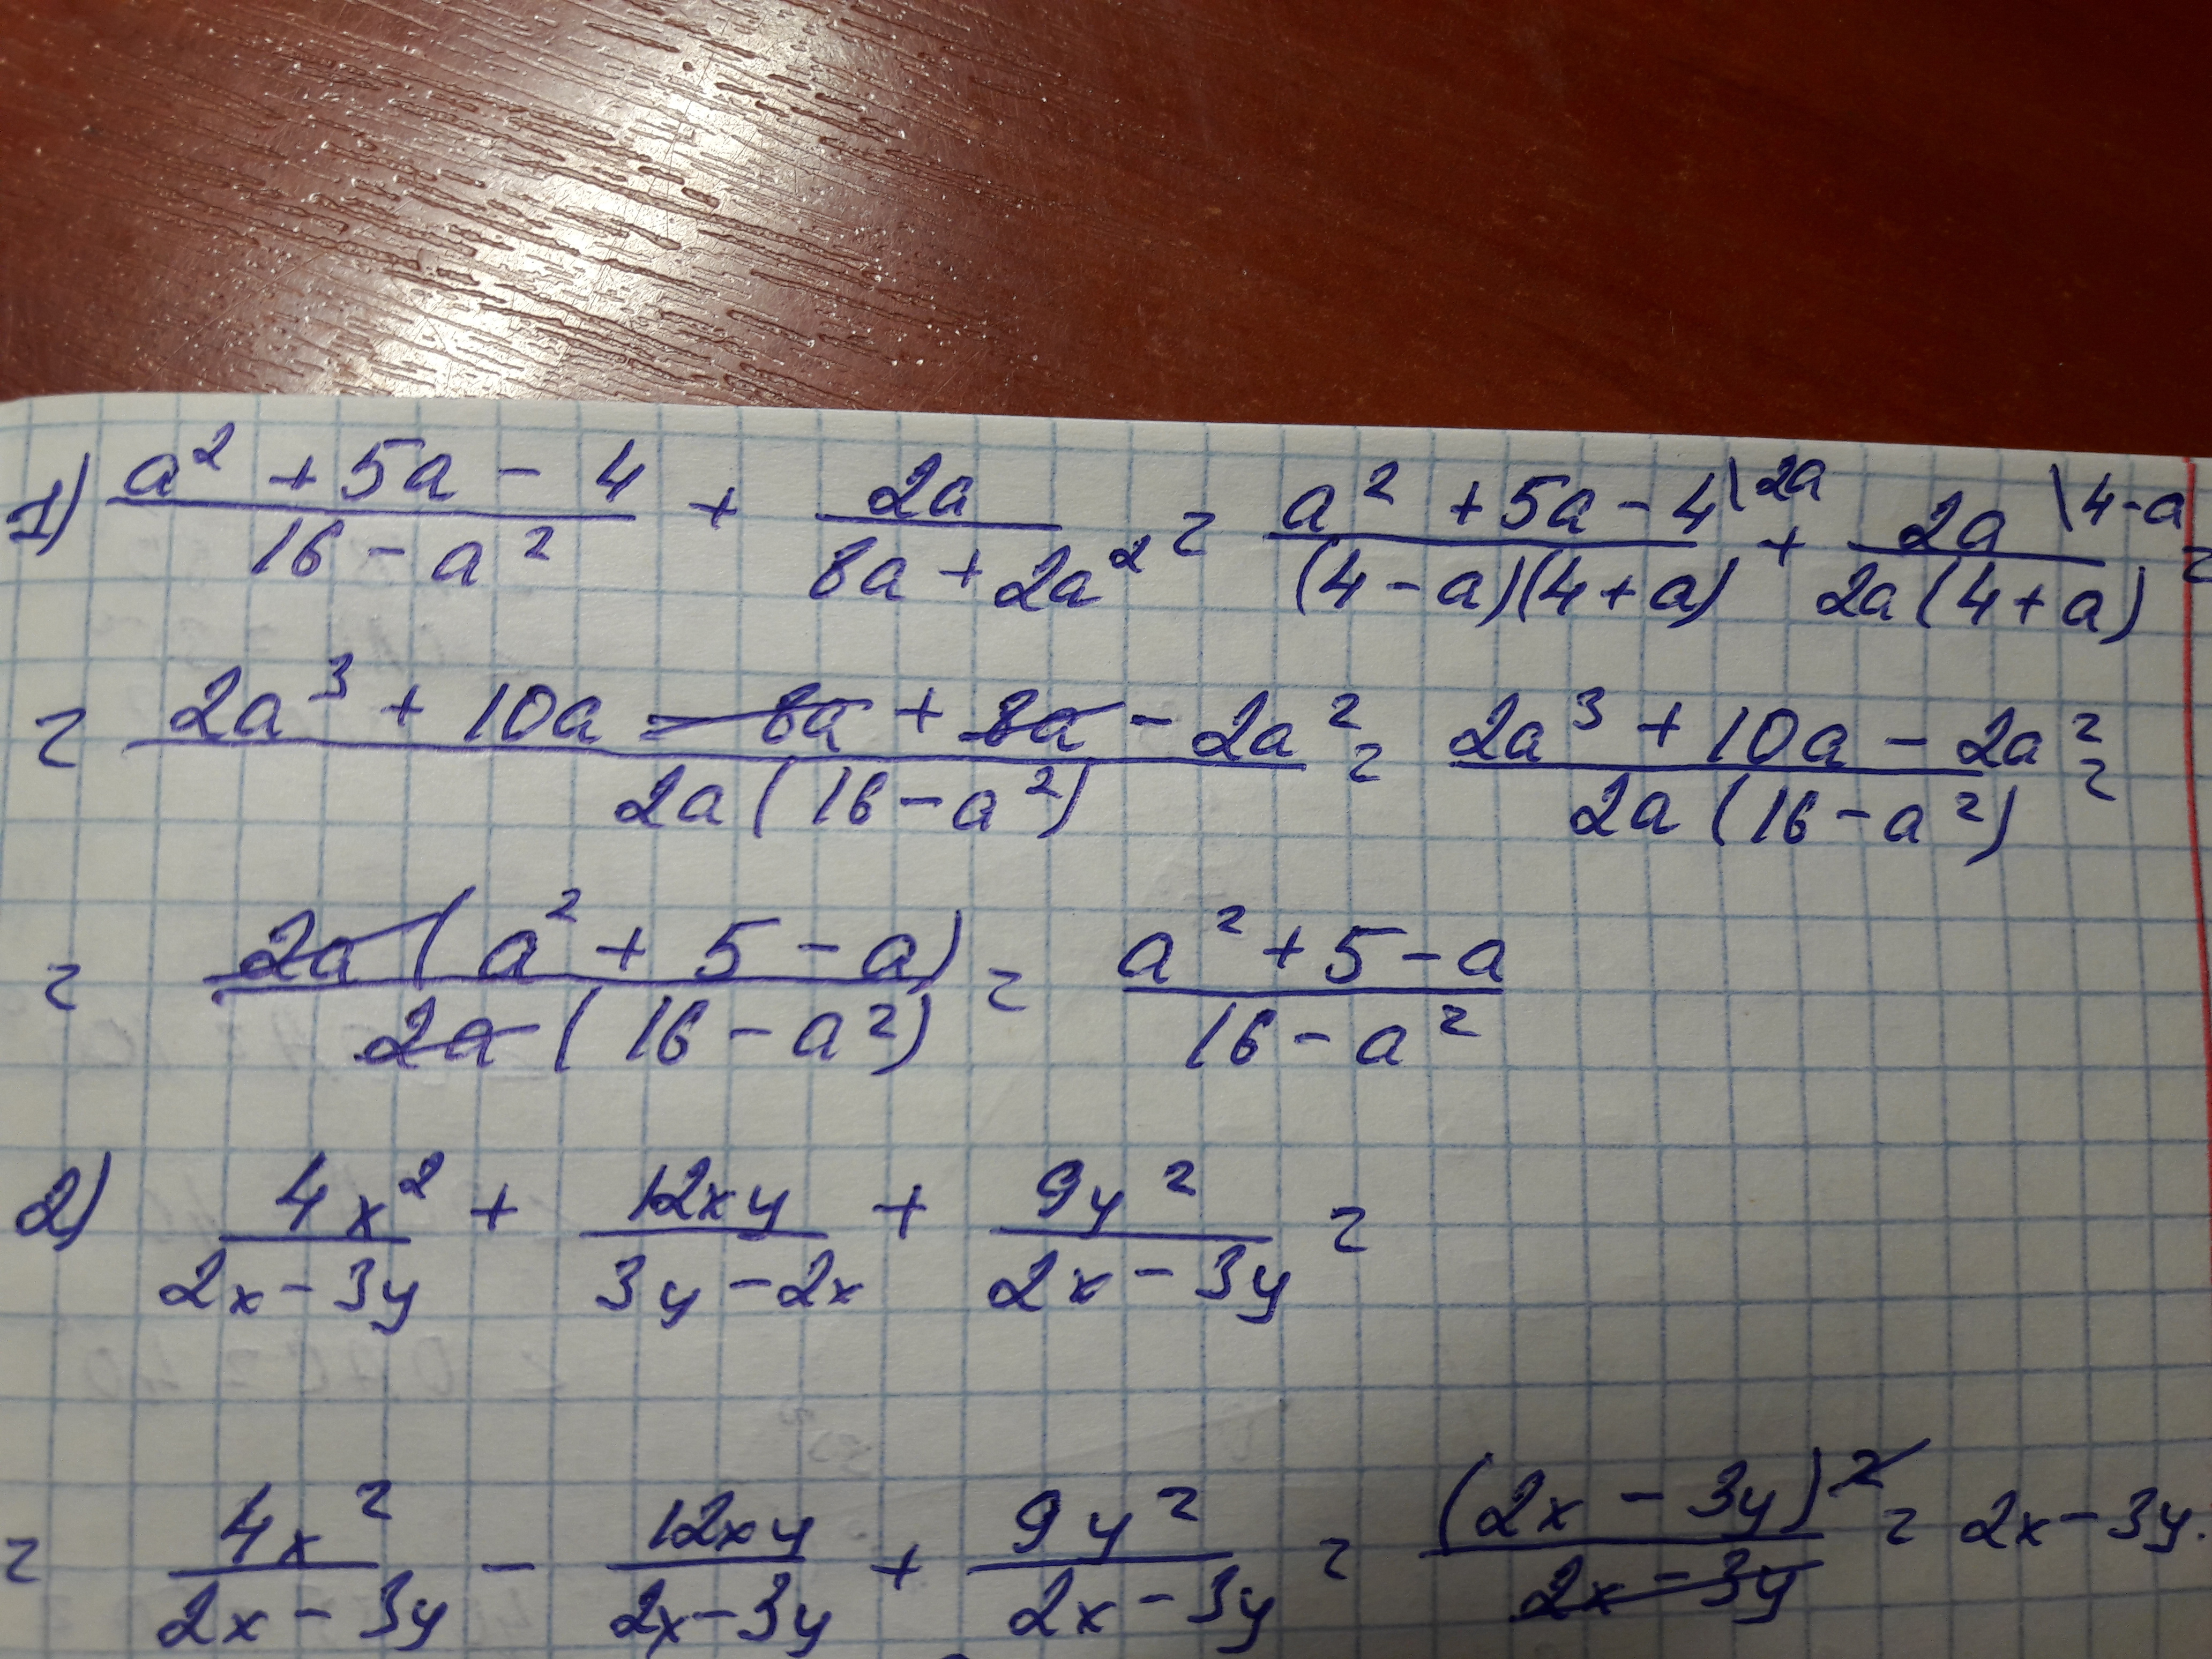 1) (a² + 5a - 4)/(16 - a²) + 2a/(8a + 2a²) = (a² + 5a - 4\2a)/((4 - a)(4 + a)) + (2a\4-a)/(2a(4 + a)) =
= (2a³ + 10a - 8a + 8a - 2a²)/(2a(16 - a²)) = (2a³ + 10a - 2a²)/(2a(16 - a²)) =
= (2a(a² + 5 - a))/(2a(16 - a²)) = (a² + 5 - a)/(16 - a²)
2) 4x²/(2x - 3y) + 12xy/(3y - 2x) + 9y²/(2x - 3y) =
= 4x²/(2x - 3y) - 12xy/(2x - 3y) + 9y²/(2x - 3y) = (2x - 3y)²/(2x - 3y) = 2x - 3y.